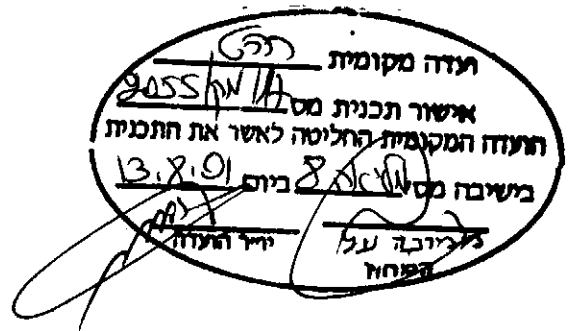 ועדה מקומית
אישור תכנית מס 2055
הועדה המקומית החליטה לאשר את התכנית
בישיבה מס 8 ביום 13.8.01
יו״ר הועדה
הממונה על
המחוז